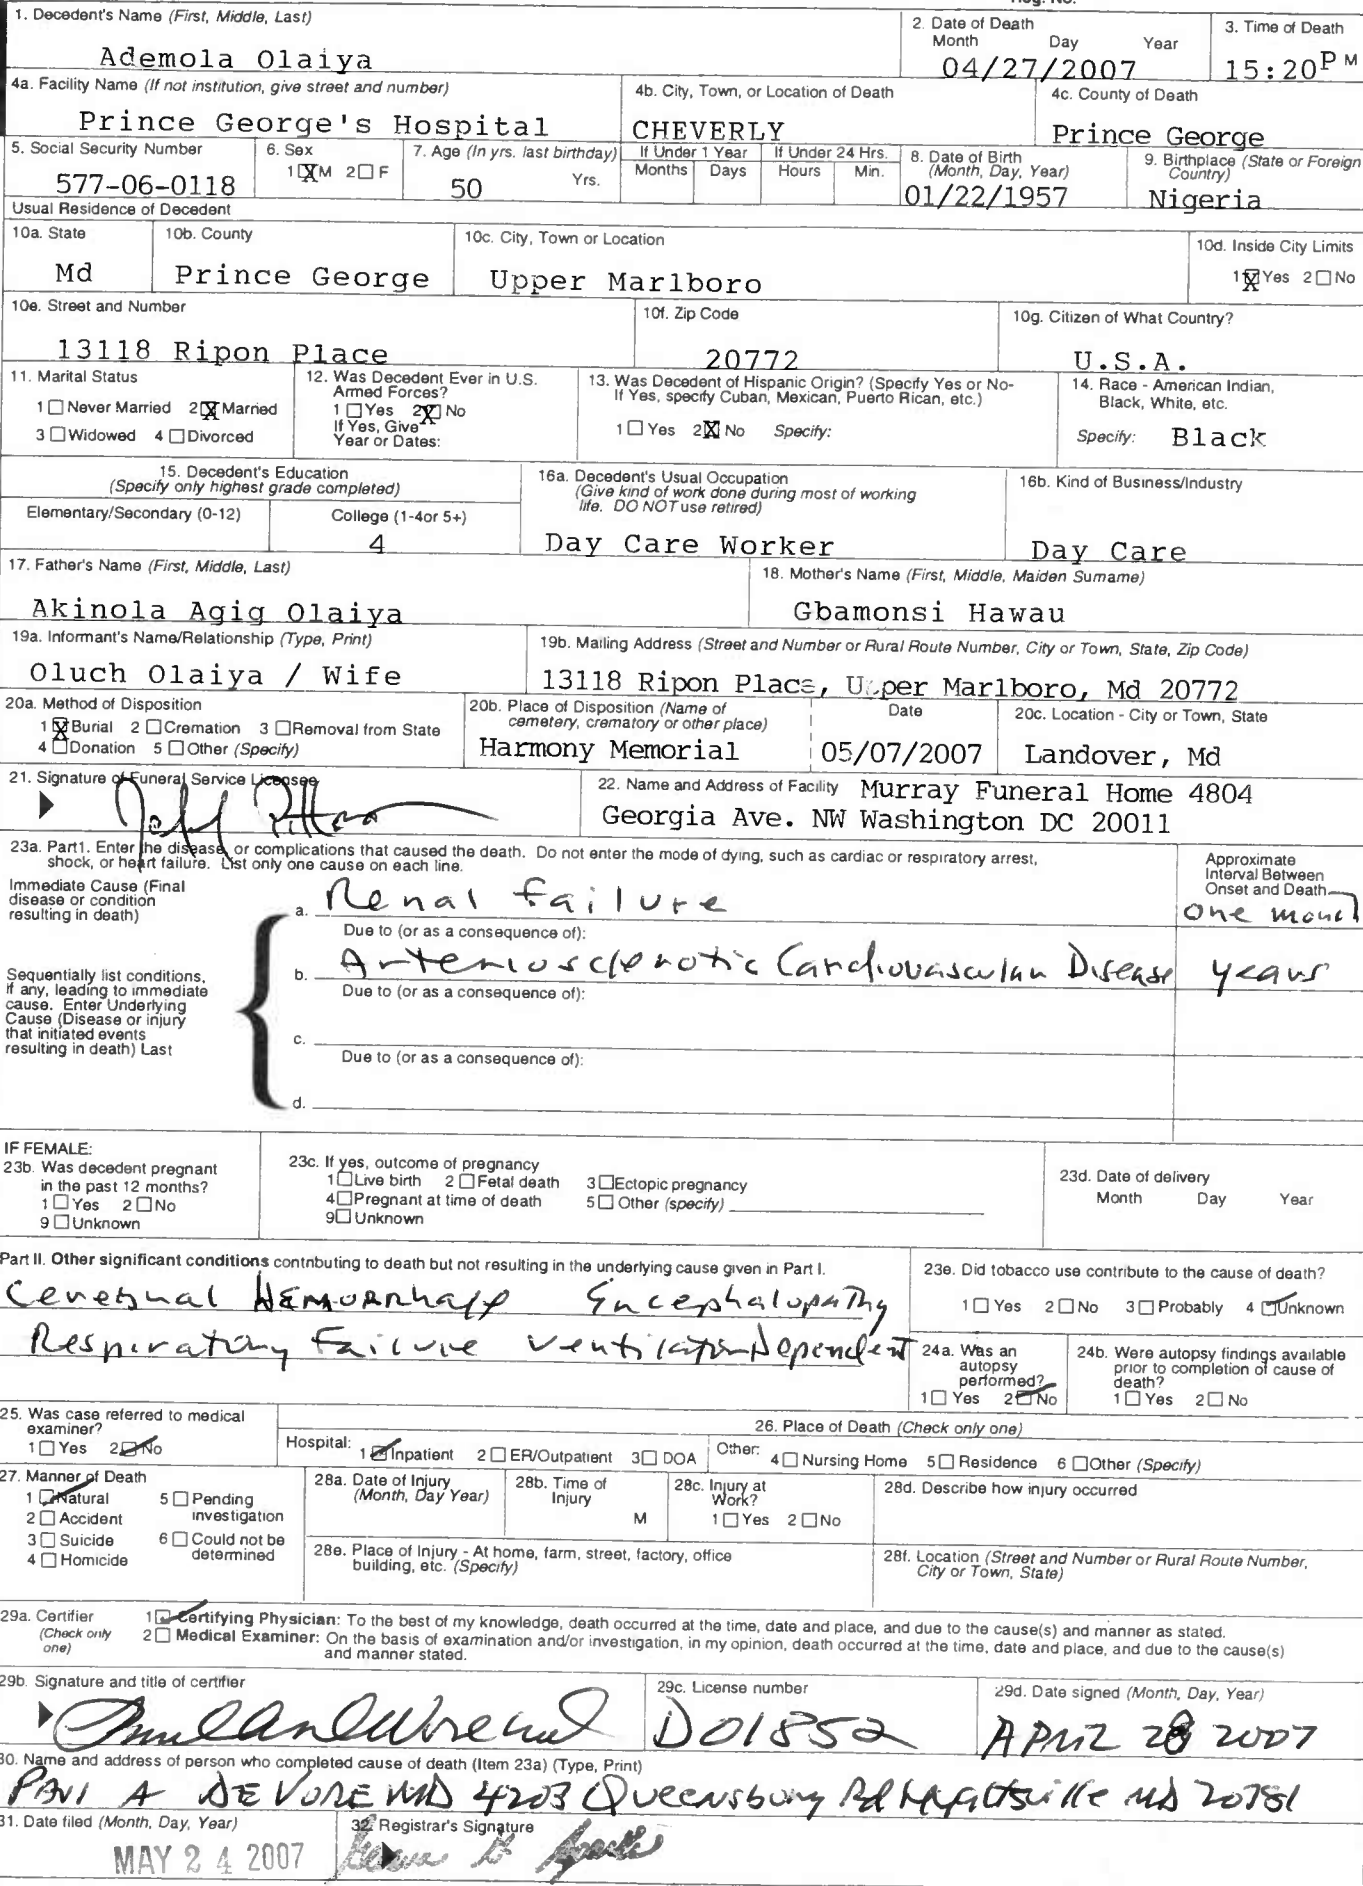 1. Decedent's Name (First, Middle, Last)
Ademola Olaiya
2. Date of Death
Month Day Year
04/27/2007
3. Time of Death
15:20 P M
4a. Facility Name (If not institution, give street and number)
Prince George's Hospital
4b. City, Town, or Location of Death
CHEVERLY
4c. County of Death
Prince George
5. Social Security Number
577-06-0118
6. Sex
1 ☒ M 2 ☐ F
7. Age (In yrs. last birthday)
50 Yrs.
If Under 1 Year
Months Days
If Under 24 Hrs.
Hours Min.
8. Date of Birth
(Month, Day, Year)
01/22/1957
9. Birthplace (State or Foreign
Country)
Nigeria
Usual Residence of Decedent
10a. State
Md
10b. County
Prince George
10c. City, Town or Location
Upper Marlboro
10d. Inside City Limits
1 ☒ Yes 2 ☐ No
10e. Street and Number
13118 Ripon Place
10f. Zip Code
20772
10g. Citizen of What Country?
U.S.A.
11. Marital Status
1 ☐ Never Married 2 ☒ Married
3 ☐ Widowed 4 ☐ Divorced
12. Was Decedent Ever in U.S.
Armed Forces?
1 ☐ Yes 2 ☒ No
If Yes, Give
Year or Dates:
13. Was Decedent of Hispanic Origin? (Specify Yes or No-
If Yes, specify Cuban, Mexican, Puerto Rican, etc.)
1 ☐ Yes 2 ☒ No Specify:
14. Race - American Indian,
Black, White, etc.
Specify: Black
15. Decedent's Education
(Specify only highest grade completed)
Elementary/Secondary (0-12)
College (1-4or 5+)
4
16a. Decedent's Usual Occupation
(Give kind of work done during most of working
life. DO NOT use retired)
Day Care Worker
16b. Kind of Business/Industry
Day Care
17. Father's Name (First, Middle, Last)
Akinola Agig Olaiya
18. Mother's Name (First, Middle, Maiden Surname)
Gbamonsi Hawau
19a. Informant's Name/Relationship (Type, Print)
Oluch Olaiya / Wife
19b. Mailing Address (Street and Number or Rural Route Number, City or Town, State, Zip Code)
13118 Ripon Place, Upper Marlboro, Md 20772
20a. Method of Disposition
1 ☒ Burial 2 ☐ Cremation 3 ☐ Removal from State
4 ☐ Donation 5 ☐ Other (Specify)
20b. Place of Disposition (Name of
cemetery, crematory or other place)
Harmony Memorial
Date
05/07/2007
20c. Location - City or Town, State
Landover, Md
21. Signature of Funeral Service Licensee
22. Name and Address of Facility Murray Funeral Home 4804
Georgia Ave. NW Washington DC 20011
23a. Part1. Enter the disease, or complications that caused the death. Do not enter the mode of dying, such as cardiac or respiratory arrest,
shock, or heart failure. List only one cause on each line.
Approximate
Interval Between
Onset and Death
Immediate Cause (Final
disease or condition
resulting in death)
a. Renal Failure
one month
Due to (or as a consequence of):
Sequentially list conditions,
if any, leading to immediate
cause. Enter Underlying
Cause (Disease or injury
that initiated events
resulting in death) Last
b. Arteriosclerotic Cardiovascular Disease years
Due to (or as a consequence of):
c.
Due to (or as a consequence of):
d.
IF FEMALE:
23b. Was decedent pregnant
in the past 12 months?
1 ☐ Yes 2 ☐ No
9 ☐ Unknown
23c. If yes, outcome of pregnancy
1 ☐ Live birth 2 ☐ Fetal death 3 ☐ Ectopic pregnancy
4 ☐ Pregnant at time of death 5 ☐ Other (specify)
9 ☐ Unknown
23d. Date of delivery
Month Day Year
Part II. Other significant conditions contributing to death but not resulting in the underlying cause given in Part I.
Cerebral Hemorrhage Encephalopathy
Respiratory Failure Ventilator Dependent
23e. Did tobacco use contribute to the cause of death?
1 ☐ Yes 2 ☐ No 3 ☐ Probably 4 ☑ Unknown
24a. Was an
autopsy
performed?
1 ☐ Yes 2 ☑ No
24b. Were autopsy findings available
prior to completion of cause of
death?
1 ☐ Yes 2 ☐ No
25. Was case referred to medical
examiner?
1 ☐ Yes 2 ☑ No
26. Place of Death (Check only one)
Hospital: 1 ☑ Inpatient 2 ☐ ER/Outpatient 3 ☐ DOA Other: 4 ☐ Nursing Home 5 ☐ Residence 6 ☐ Other (Specify)
27. Manner of Death
1 ☑ Natural 5 ☐ Pending
investigation
2 ☐ Accident
3 ☐ Suicide 6 ☐ Could not be
determined
4 ☐ Homicide
28a. Date of Injury
(Month, Day Year)
28b. Time of
Injury
M
28c. Injury at
Work?
1 ☐ Yes 2 ☐ No
28d. Describe how injury occurred
28e. Place of Injury - At home, farm, street, factory, office
building, etc. (Specify)
28f. Location (Street and Number or Rural Route Number,
City or Town, State)
29a. Certifier
(Check only
one)
1 ☑ Certifying Physician: To the best of my knowledge, death occurred at the time, date and place, and due to the cause(s) and manner as stated.
2 ☐ Medical Examiner: On the basis of examination and/or investigation, in my opinion, death occurred at the time, date and place, and due to the cause(s)
and manner stated.
29b. Signature and title of certifier
29c. License number
D01852
29d. Date signed (Month, Day, Year)
APRIL 28 2007
30. Name and address of person who completed cause of death (Item 23a) (Type, Print)
PAUL A DEVORE MD 4203 Queensbury Rd Hyattsville MD 20781
31. Date filed (Month, Day, Year)
MAY 24 2007
32. Registrar's Signature